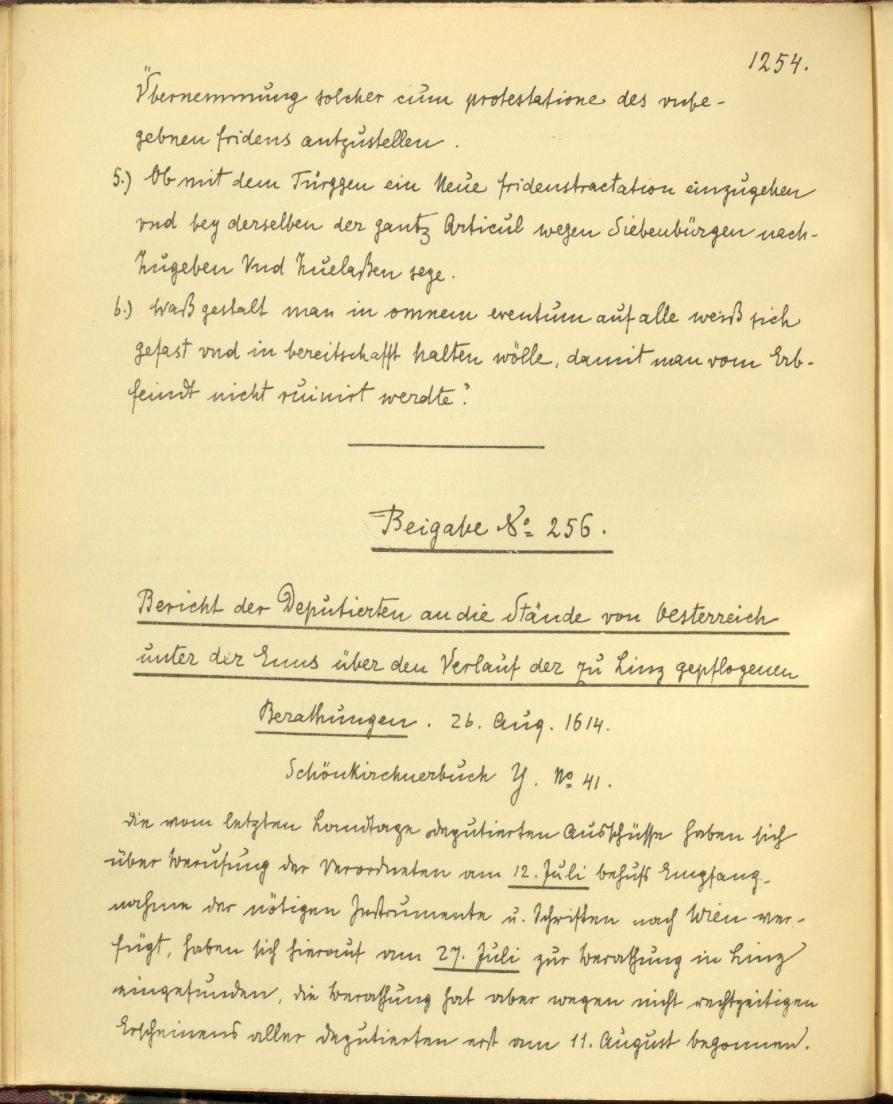 1254.
Übernemmung solcher cum protestatione des unbe-
gebnen fridens antzustellen.
5.) Ob mit dem Türggen ein Neue fridenstractation einzugehen
vnd bey derselben der gantz Articul wegen Siebenbürgen nach-
zugeben Vnd zuelaßen seye.
6.) Waß gestalt man in omnem eventum auf alle weiß sich
gefast vnd in bereitschafft halten wölle, damit man vom Erb-
feindt nicht ruinirt werdte?
Beigabe No 256.
Bericht der Deputierten an die Stände von Oesterreich
unter der Enns über den Verlauf der zu Linz gepflogenen
Berathungen. 26. Aug. 1614.
Schönkirchnerbuch Y. No 41.
Die vom letzten Landtage deputierten Ausschüsse haben sich
über Berufung der Verordneten am 12. Juli behufs Empfang-
nahme der nötigen Instrumente u. Schriften nach Wien ver-
fügt, haben sich hierauf am 27. Juli zur Berathung in Linz
eingefunden, die Berathung hat aber wegen nicht rechtzeitigen
Erscheinens aller Deputierten erst am 11. August begonnen.